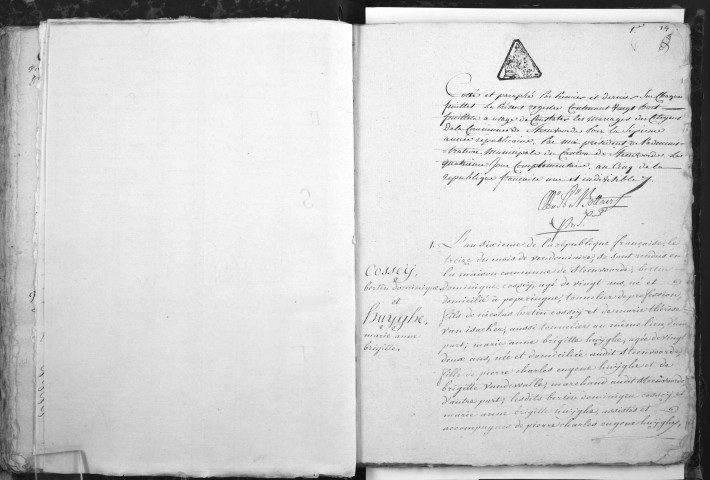 1er 14
Cotté et paraphé Par Premier et dernier Sur Chaque
feuillet Le Présent registre Contenant Vingt huit
feuillets a usage de Constater les Mariages des Citoyens
de la Commune de Steenvoorde Pour la Sixieme
année republicaine, Par moi président de l'adminis-
tration Municipale du Canton de Steenvoorde Le
quatrieme Jour Complementaire, au Cinq de la
republique française une et indivisible
Pnt
1. L'an sixieme de la république française, le
treize du mois de vendemiaire, se sont rendus en
la maison commune de Steenvoorde, bertin
dominique cosseÿ, agé de vingt ans, né et
domicilié à poperingue, tonnelier de profession,
fils de nicolas bertin cosseÿ et de marie thérèse
van isacker, aussi tonnelier au même lieu, d'une
part, marie anne brigitte huÿghe, agée de vingt
deux ans, née et domiciliée audit Steenvoorde,
fille de pierre charles eugene huÿghe et de
brigitte vandewalle, marchand audit Steenvoorde
d'autre part, lesdits bertin dominique cosseÿ et
marie anne brigitte huÿghe, assistés et
accompagnés de pierre charles eugene huÿghe,
Cosseÿ,
bertin dominique,
et
huÿghe,
marie anne
brigitte.